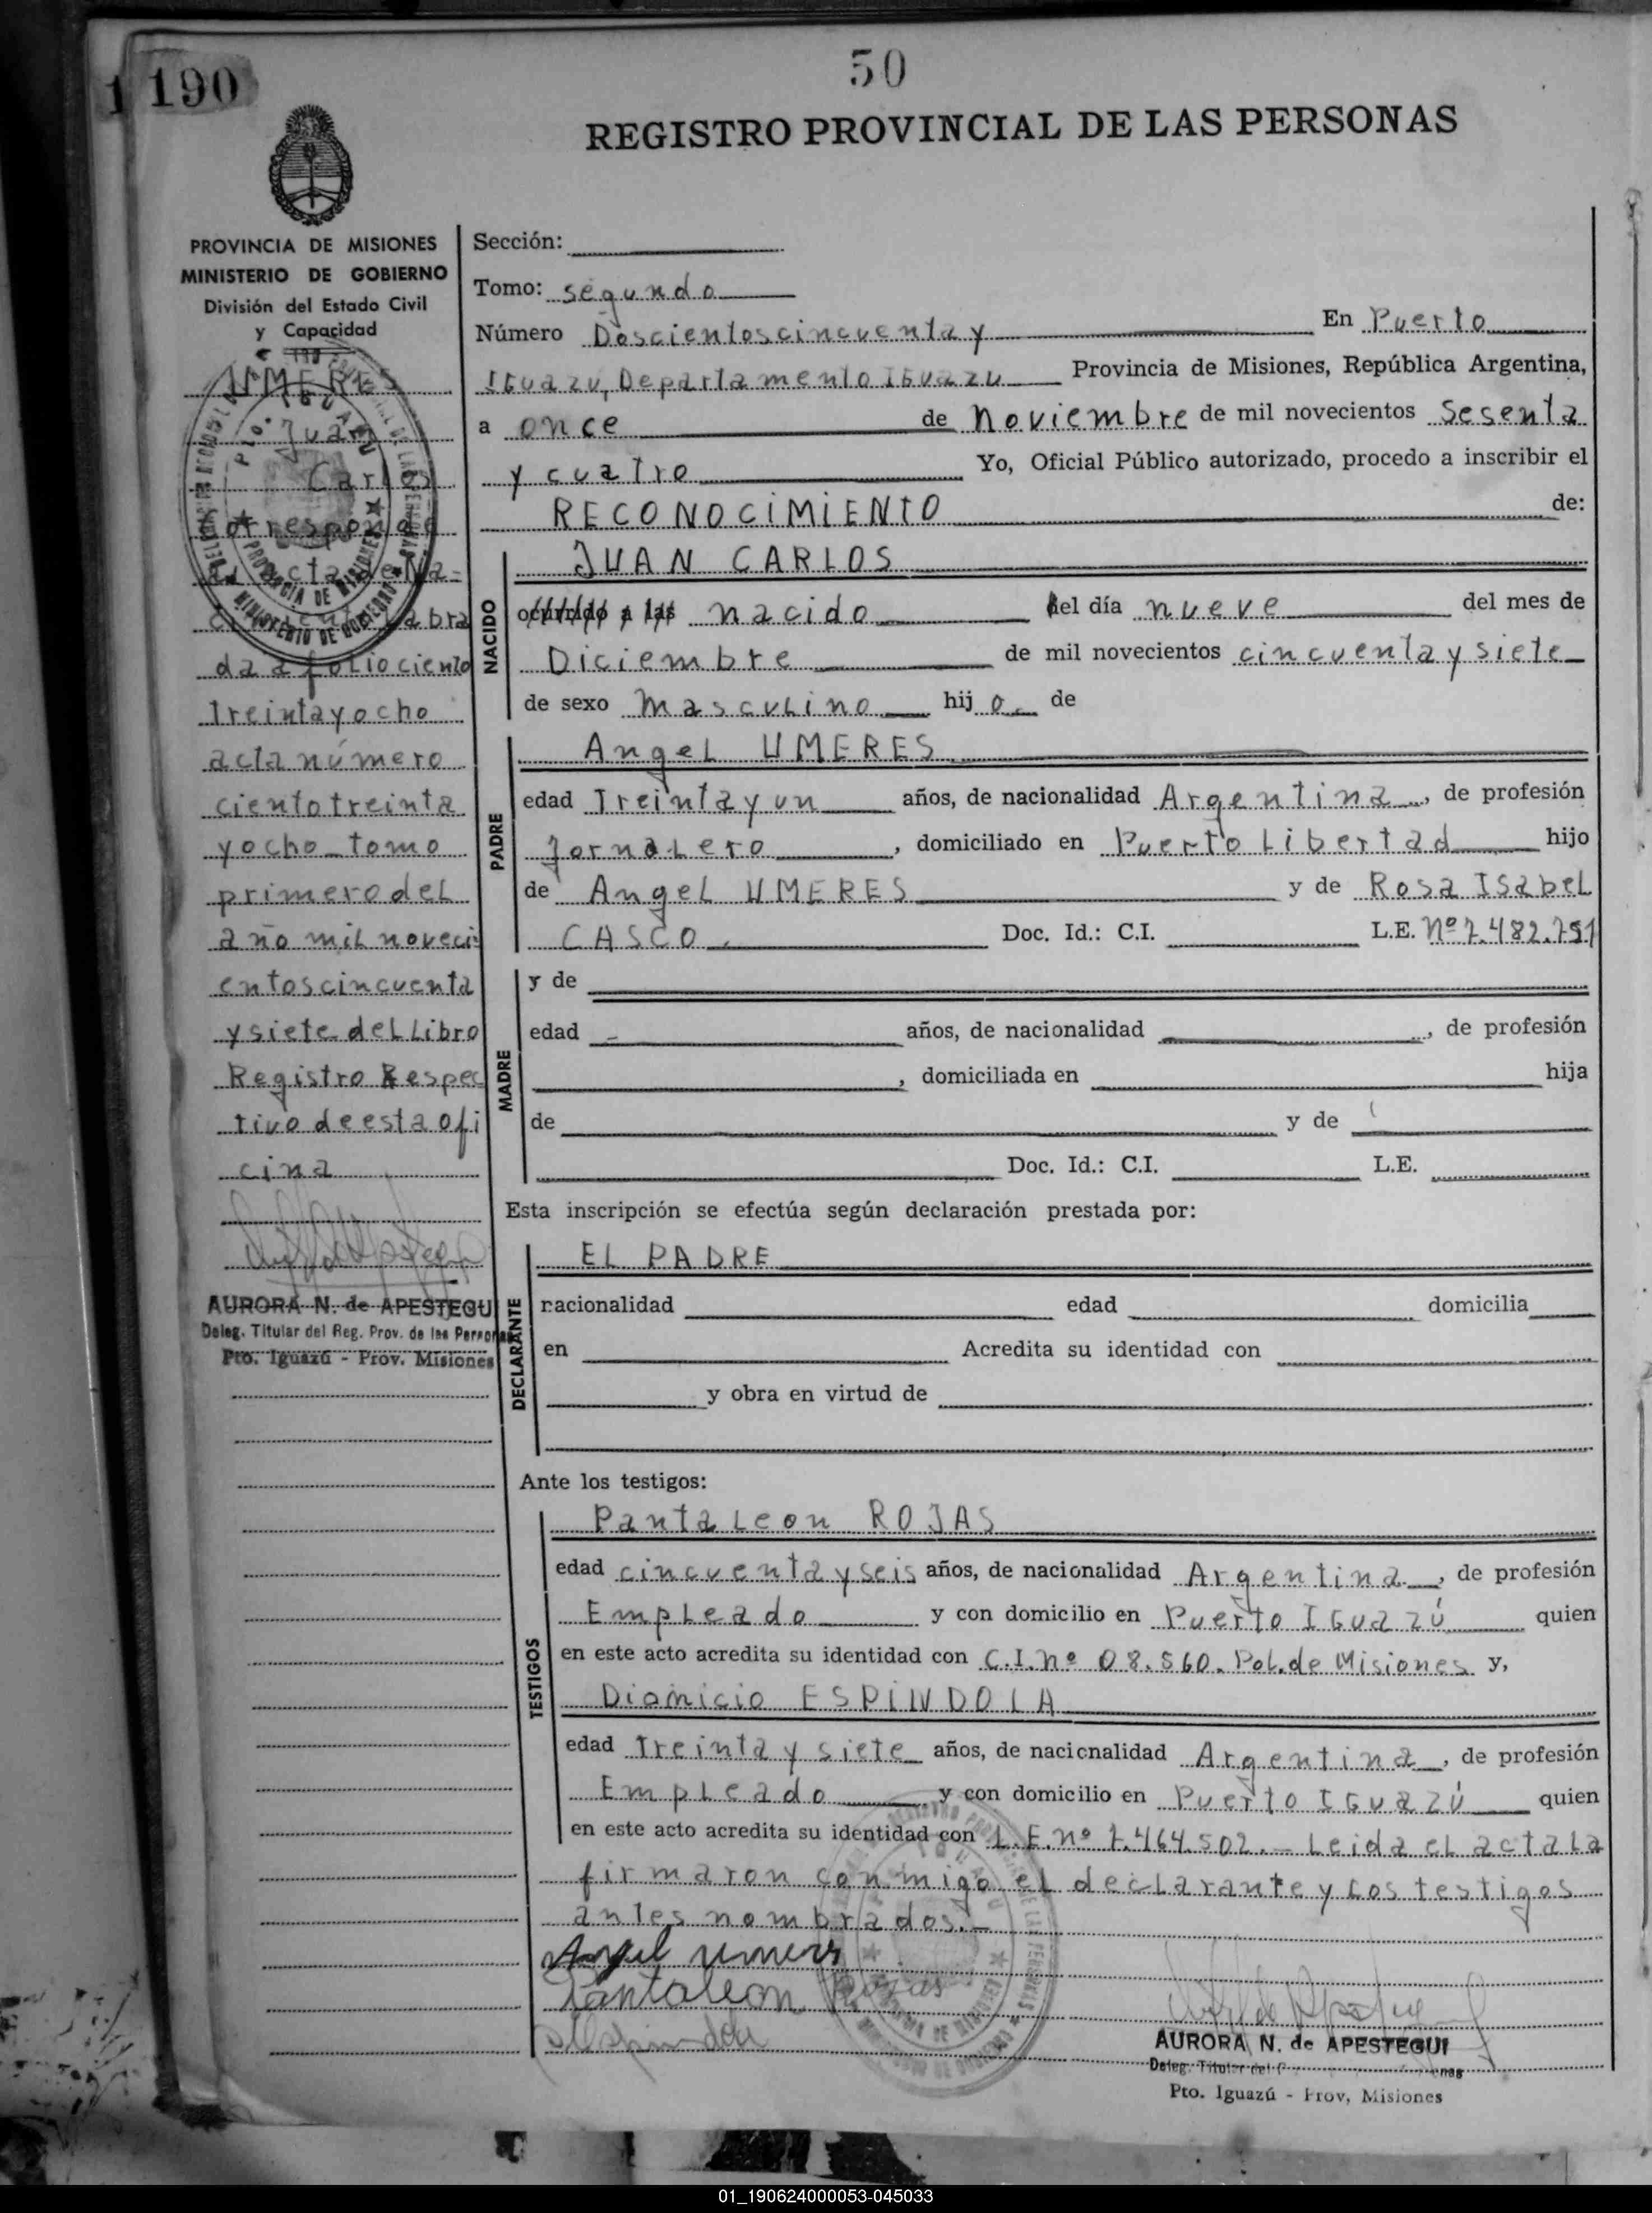 1 190
50
REGISTRO PROVINCIAL DE LAS PERSONAS
PROVINCIA DE MISIONES
MINISTERIO DE GOBIERNO
División del Estado Civil
y Capacidad
UMERES
Juan
Carlos
Corresponde
al acta de Na-
cimiento labra
da a folio ciento
treinta y ocho
acta número
ciento treinta
y ocho tomo
primero del
año mil noveci
entos cincuenta
y siete del Libro
Registro Respec
tivo de esta ofi
cina
AURORA N. de APESTEGUI
Deleg. Titular del Reg. Prov. de las Personas
Pto. Iguazú - Prov. Misiones
Sección:
Tomo: segundo
Número Doscientos cincuenta y En Puerto
IGuazu, Departamento IGuazu Provincia de Misiones, República Argentina,
a once de Noviembre de mil novecientos sesenta
y cuatro Yo, Oficial Público autorizado, procedo a inscribir el
RECONOCIMIENTO de:
NACIDO
JUAN CARLOS
ocurrido a las nacido del día nueve del mes de
Diciembre de mil novecientos cincuenta y siete
de sexo masculino hij o de
PADRE
Angel UMERES
edad Treinta y un años, de nacionalidad Argentina, de profesión
Jornalero, domiciliado en Puerto Libertad hijo
de Angel UMERES y de Rosa Isabel
CASCO. Doc. Id.: C.I. L.E. Nº 7.482.751
MADRE
y de
edad años, de nacionalidad , de profesión
, domiciliada en hija
de y de
Doc. Id.: C.I. L.E.
Esta inscripción se efectúa según declaración prestada por:
DECLARANTE
EL PADRE
nacionalidad edad domicilia
en Acredita su identidad con
y obra en virtud de
Ante los testigos:
TESTIGOS
Pantaleon ROJAS
edad cincuenta y seis años, de nacionalidad Argentina, de profesión
Empleado y con domicilio en Puerto IGuazú quien
en este acto acredita su identidad con C.I. nº 08.560. Pol. de Misiones y,
Dionicio ESPINDOLA
edad treinta y siete años, de nacionalidad Argentina, de profesión
Empleado y con domicilio en Puerto IGuazú quien
en este acto acredita su identidad con L.E. nº 7.464.502.- Leida el acta la
firmaron conmigo el declarante y los testigos
antes nombrados.-
Angel umeres
Pantaleon Rojas
Espindola
AURORA N. de APESTEGUI
Deleg. Titular del
Pto. Iguazú - Prov. Misiones
01_190624000053-045033